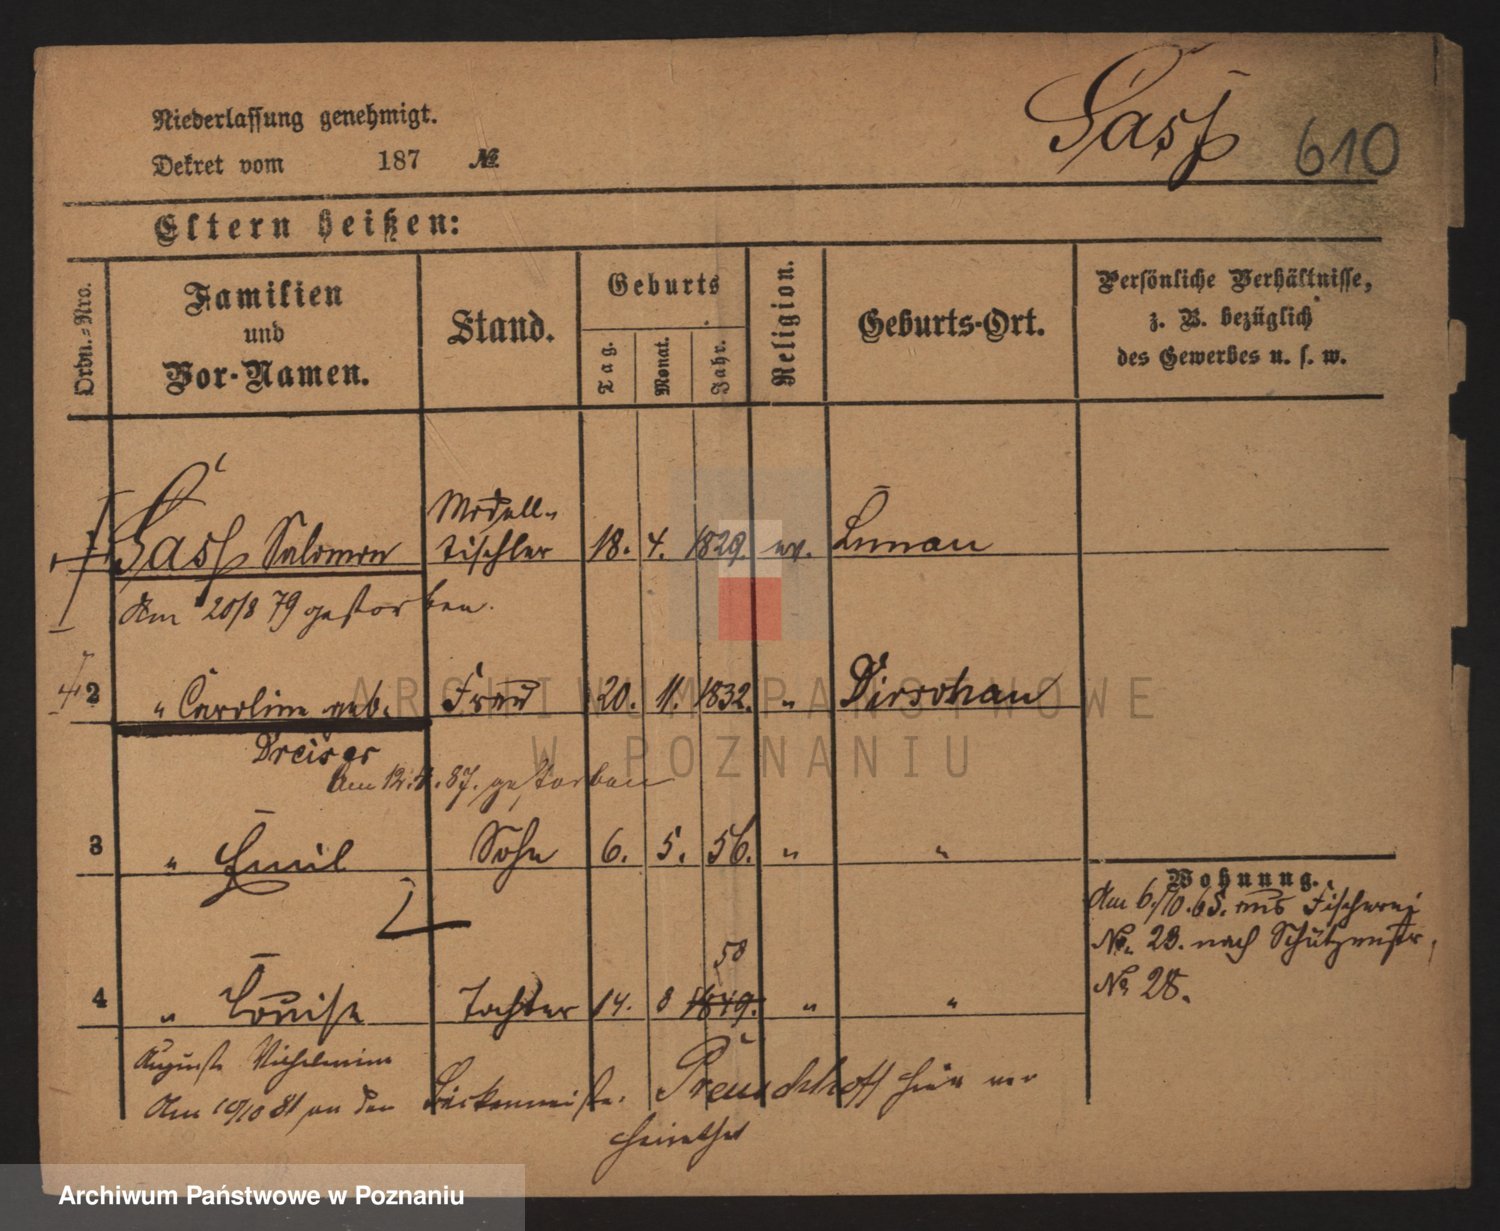 Niederlassung genehmigt.
Dekret vom 187 №
Gass 610
Eltern heißen:
Ordn.-Nro.
Familien und Vor-Namen.
Stand.
Geburts
Tag.
Monat.
Jahr.
Religion.
Geburts-Ort.
Persönliche Verhältnisse,
z. B. bezüglich
des Gewerbes u. s. w.
Modell-
1 Gass Salomon tischler 18. 4. 1829. ev. Lunau
Am 20/8 79 gestorben.
2 " Caroline geb. Frau 20. 11. 1832. " Dirschau
Dreiser
Am 12. 87. gestorben
3 " Emil Sohn 6. 5. 56. " "
Wohnung.
Am 6./10. 65. aus Fischerei
No. 23. nach Schützenstr.
No 28.
58
4 " Louise Tochter 14. 8 1849. " "
Auguste Wilhelmine
Am 10/10 81 an den Bäckermeister Preuschhoff hier ver
heirathet
ARCHIWUM PAŃSTWOWE
W POZNANIU
Archiwum Państwowe w Poznaniu